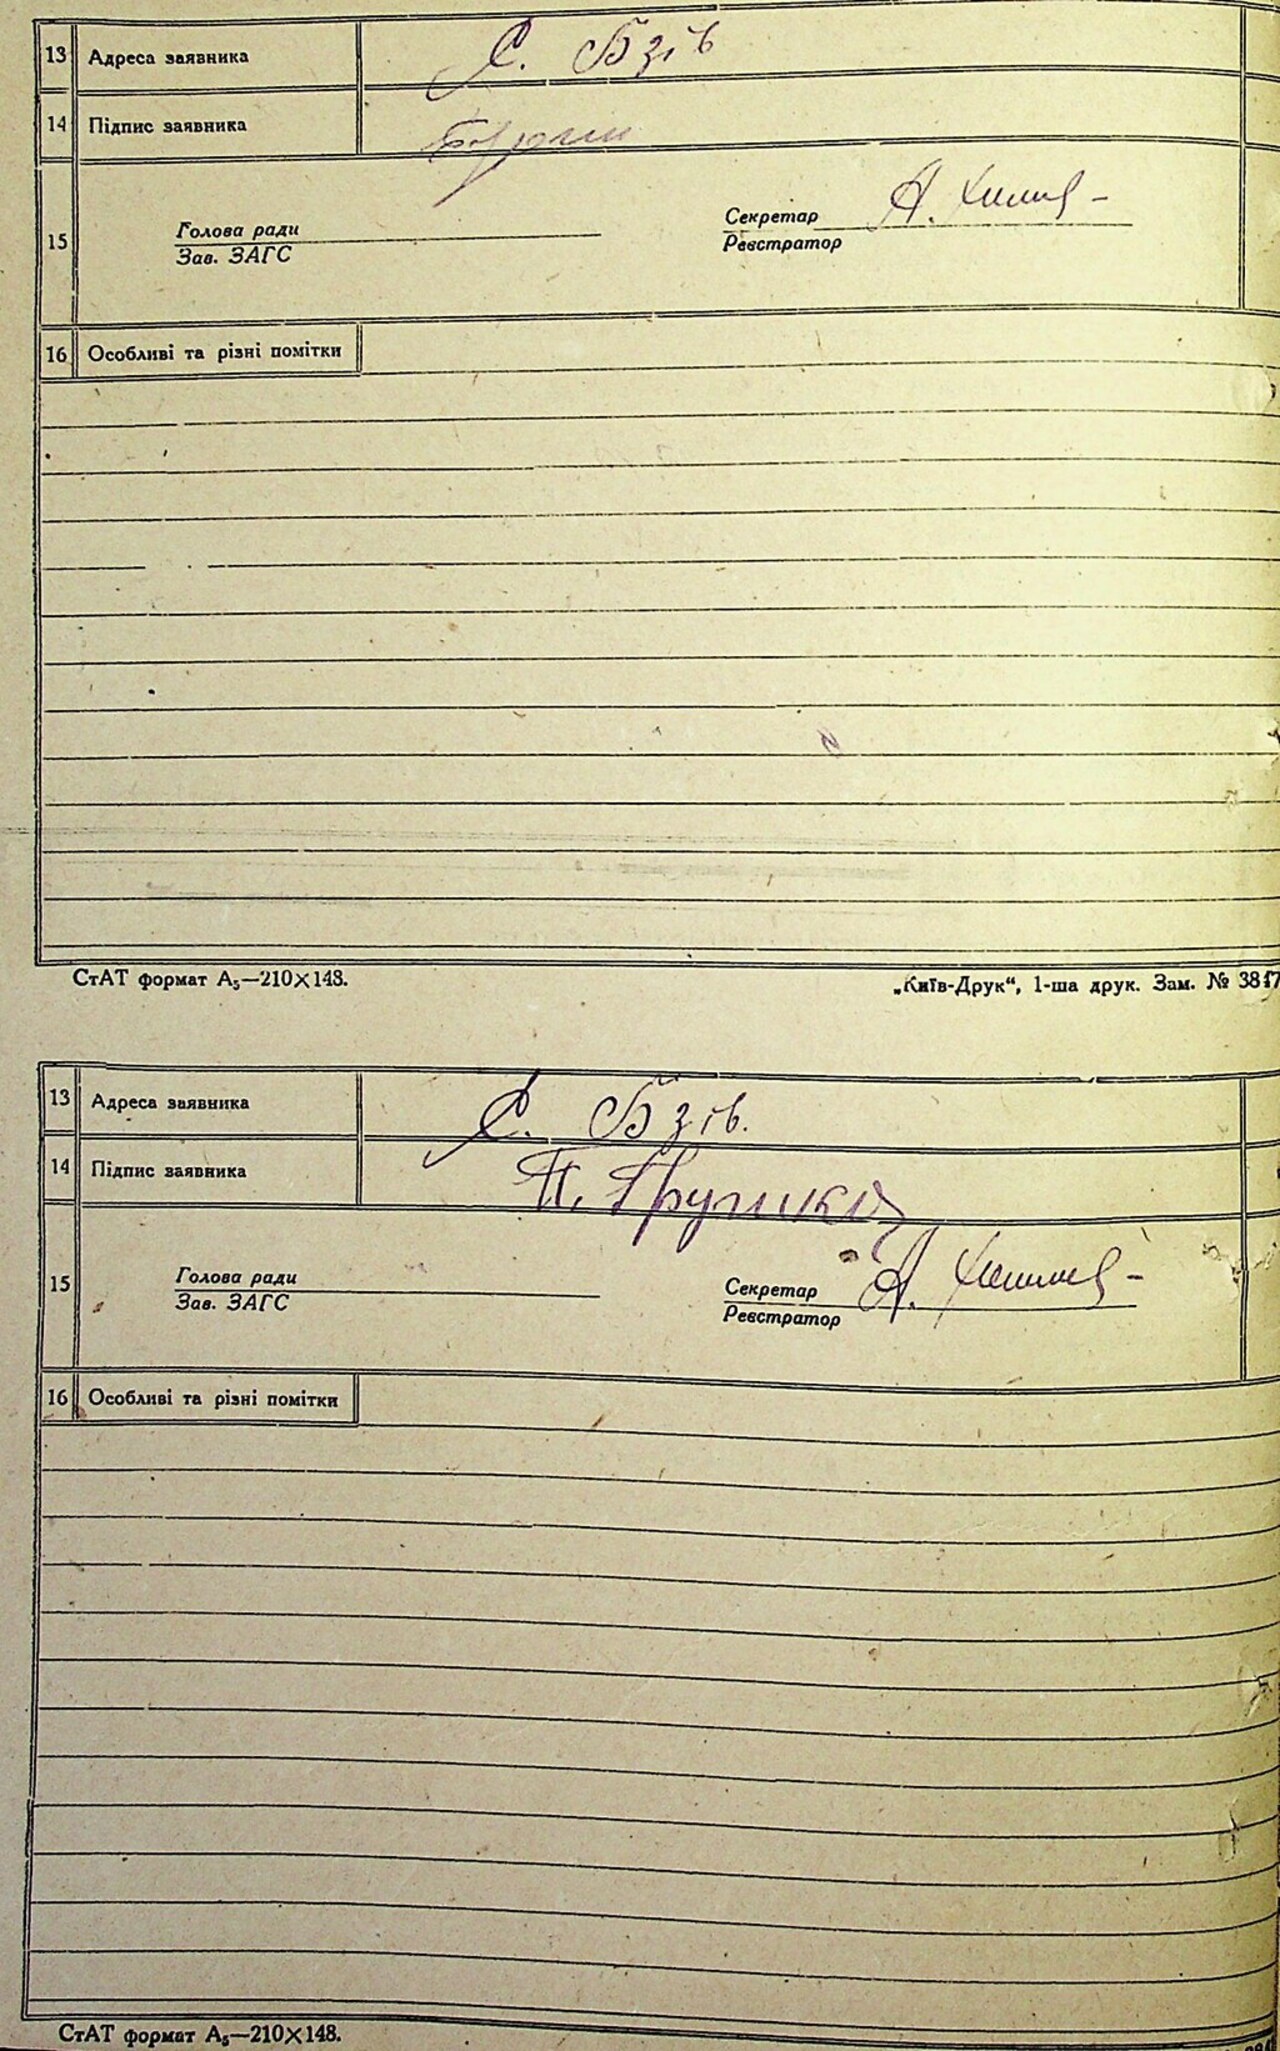 13 Адреса заявника С. Бзів
14 Підпис заявника
15 Голова ради Секретар А.
Зав. ЗАГС Реєстратор
16 Особливі та різні помітки
СтАТ формат А₅—210×148. „Київ-Друк“, 1-ша друк. Зам. № 3847
13 Адреса заявника С. Бзів.
14 Підпис заявника П. Грушка
15 Голова ради Секретар А.
Зав. ЗАГС Реєстратор
16 Особливі та різні помітки
СтАТ формат А₅—210×148.